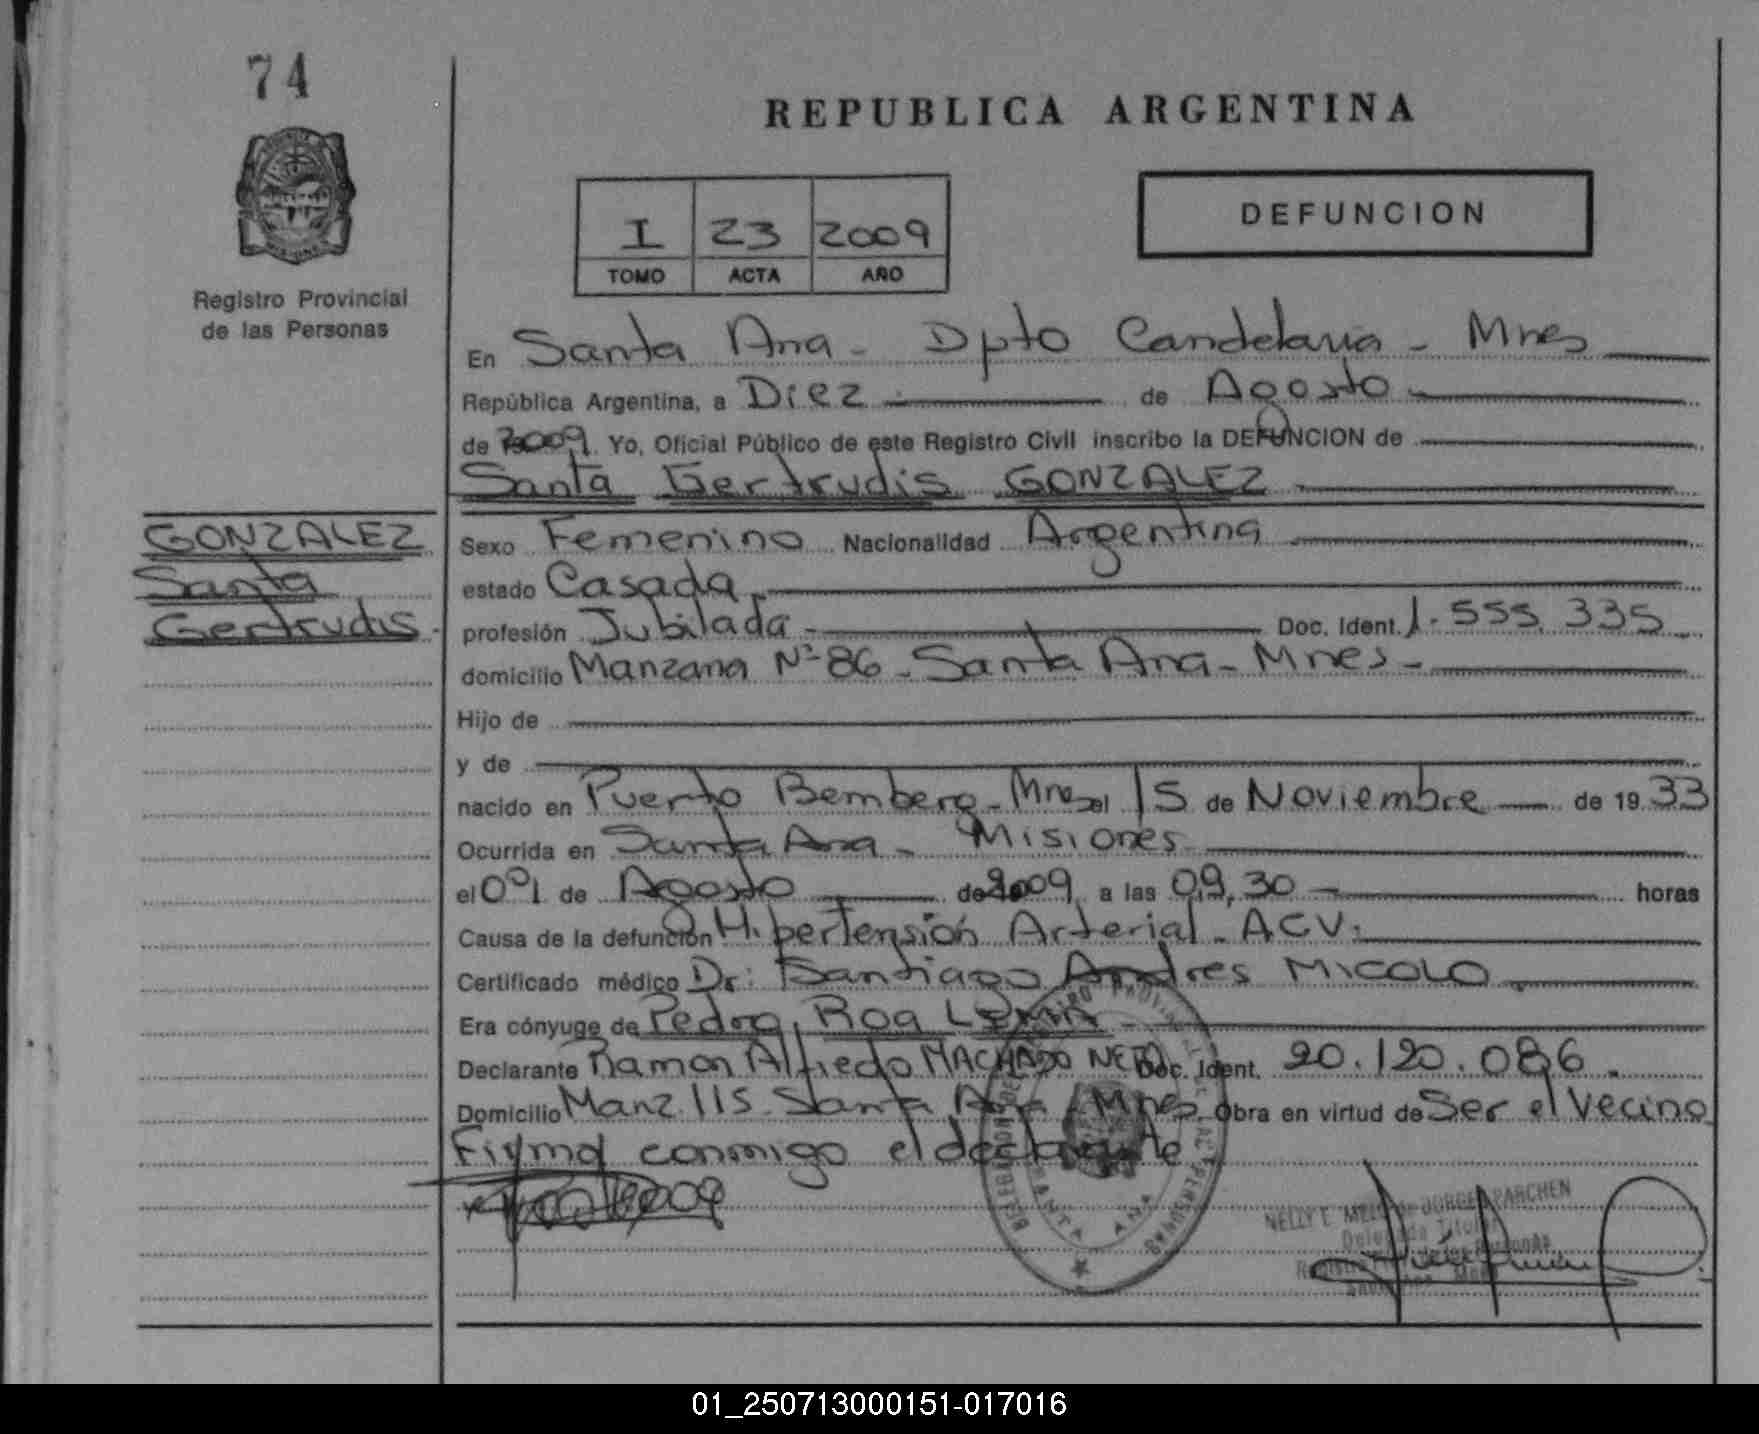 74
REPUBLICA ARGENTINA
DEFUNCION
I 23 2009
TOMO ACTA AÑO
Registro Provincial
de las Personas
En Santa Ana - Dpto Candelaria - Mnes
República Argentina, a Diez de Agosto
de 2009. Yo, Oficial Público de este Registro Civil inscribo la DEFUNCION de
Santa Gertrudis GONZALEZ
GONZALEZ
Santa
Gertrudis
Sexo Femenino Nacionalidad Argentina
estado Casada
profesión Jubilada Doc. Ident. 1.555.335
domicilio Manzana Nº 86 - Santa Ana - Mnes -
Hijo de
y de
nacido en Puerto Bemberg - Mnes el 15 de Noviembre de 1933
Ocurrida en Santa Ana - Misiones
el 0º1 de Agosto de 2009 a las 09,30 horas
Causa de la defunción Hipertensión Arterial - ACV.
Certificado médico Dr: Santiago Andres MICOLO
Era cónyuge de Pedro, Roa
Declarante Ramon Alfredo MACHADO NETO Doc. Ident. 20.120.086.
Domicilio Manz. 115. Santa Ana - Mnes Obra en virtud de Ser el Vecino
Firma conmigo el declarante
SANTA ANA
NELLY E. DE JORGE PARCHEN
Delegada Titular
01_250713000151-017016